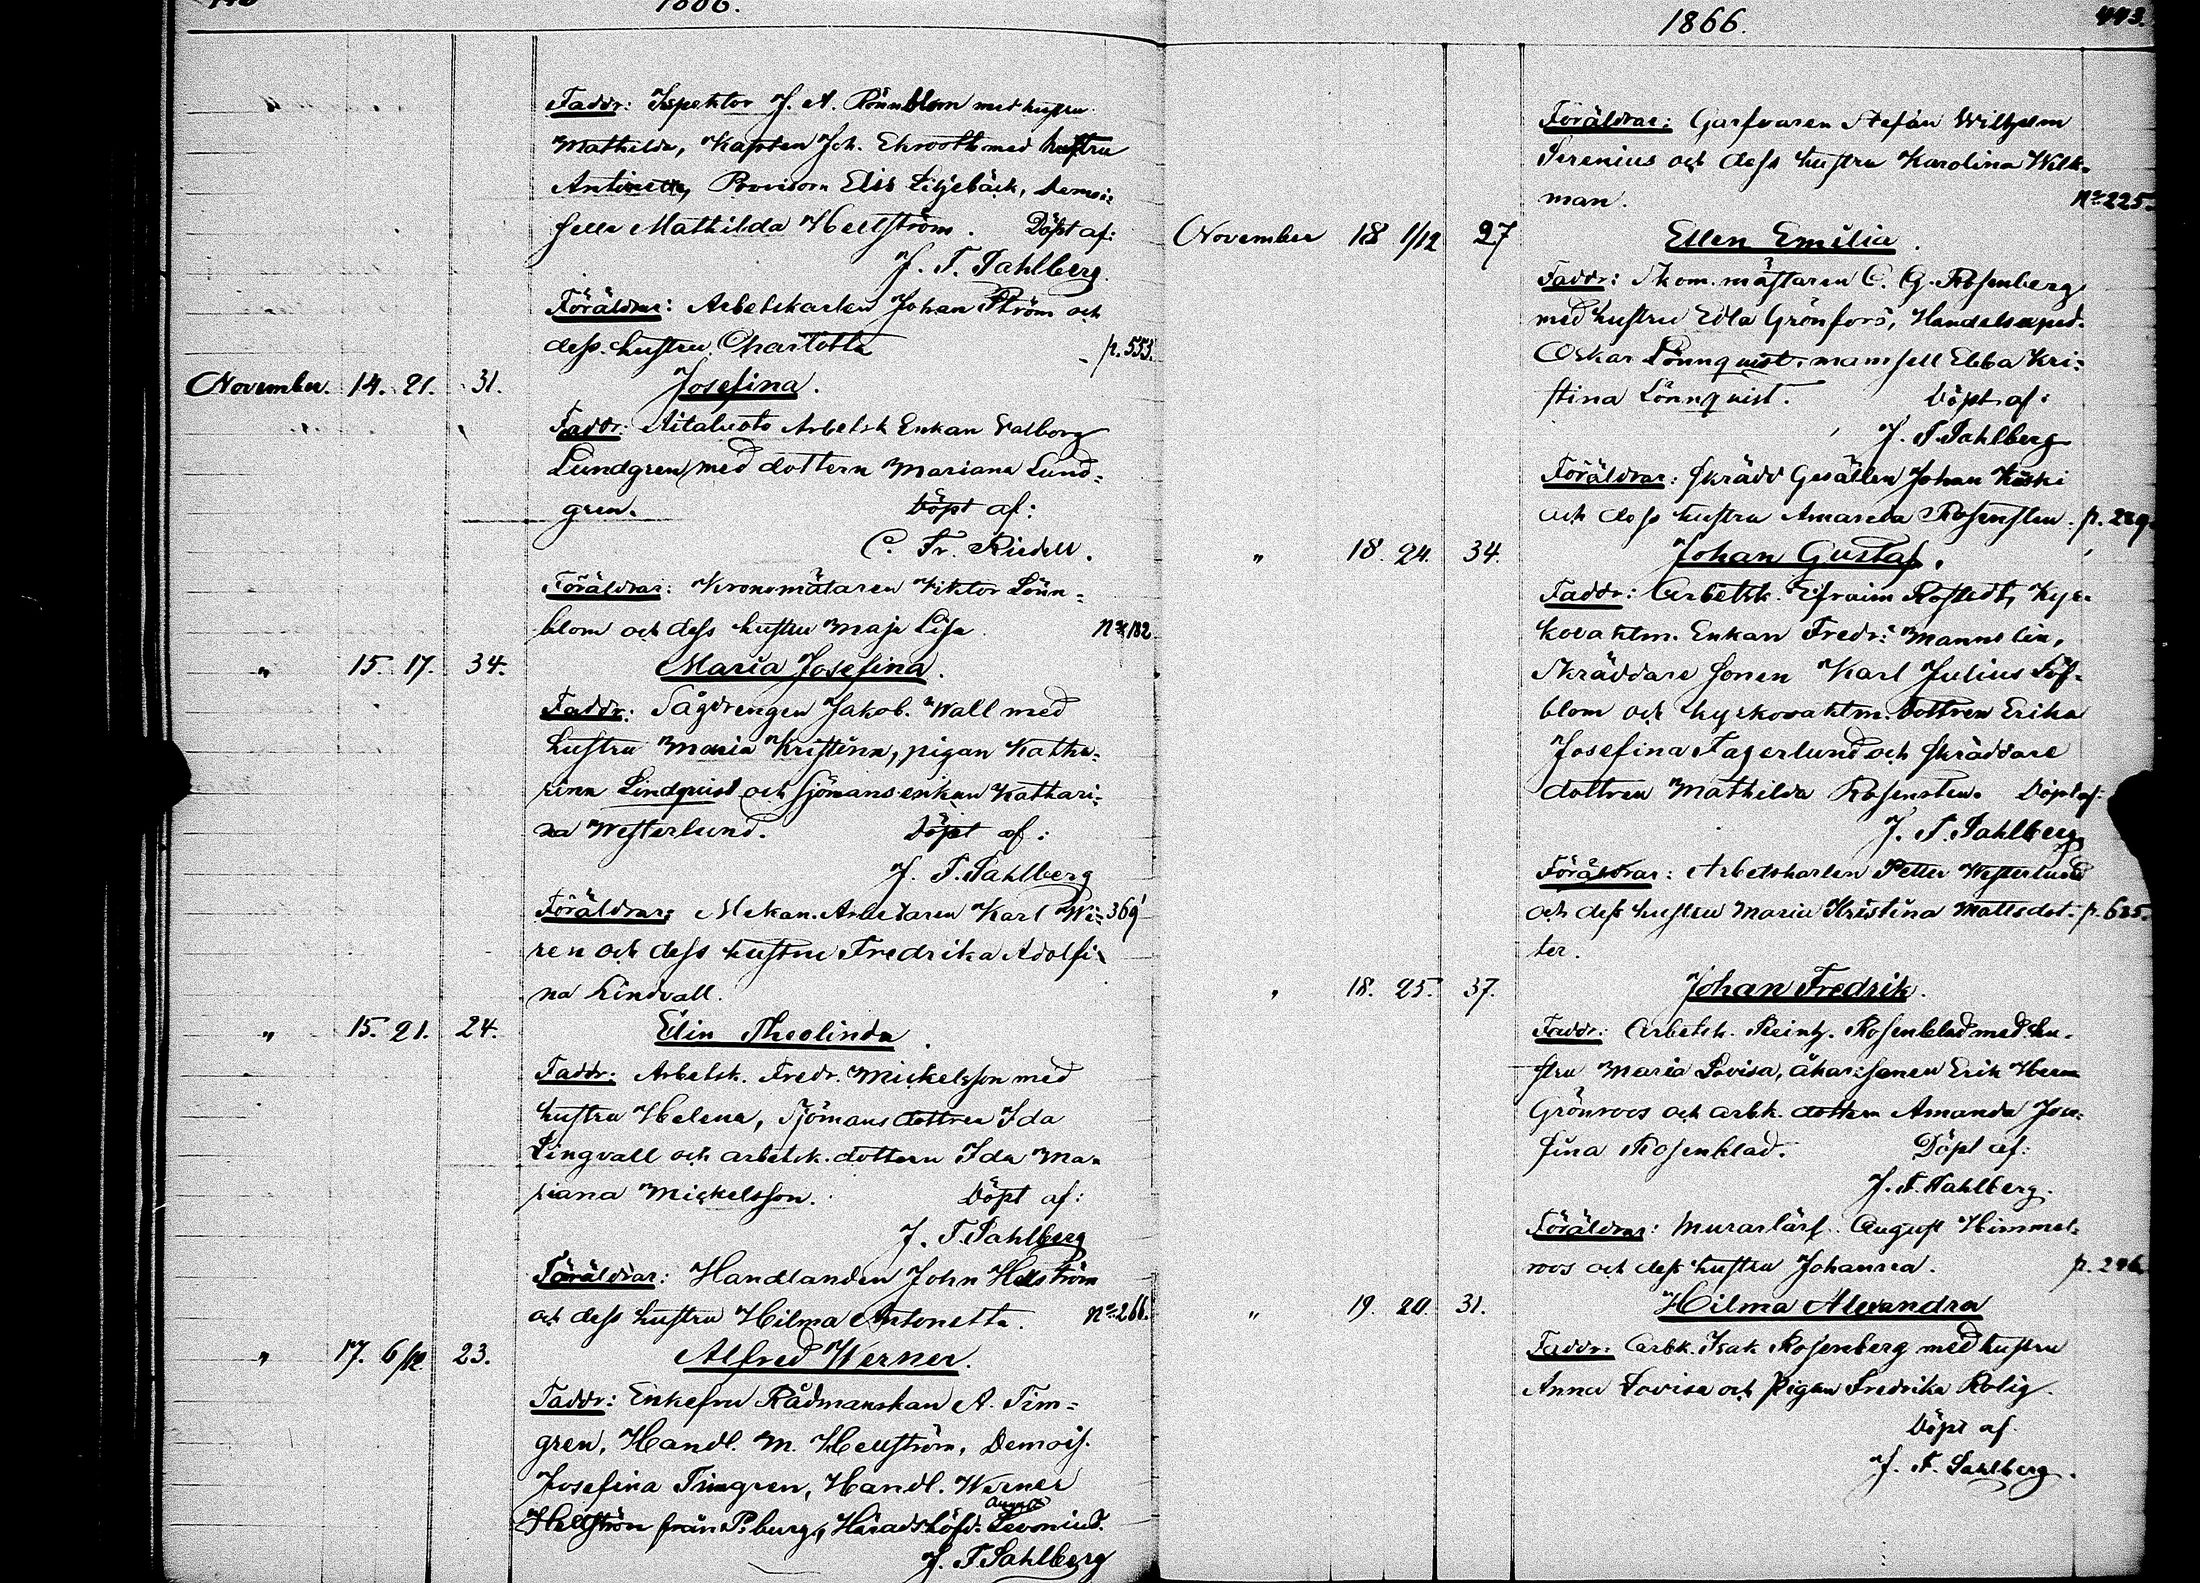 1866.
Faddr: Inspektor J. A. Rönnblom med hustru
Mathilda, Kapten Joh. Ehrooth med hustru
Provisorn Elis Liljebäck, Demoi-
selle Mathilda Hellström. Döpt af:
J. F. Sahlberg.
Föräldrar: Arbetskarlen Johan Ström och
dess hustru Charlotta p. 553.
November. 14. 21. 31. Josefina.
Faddr: Arbetsk Enkan Valborg
Lundgren med dottern Mariana Lund-
gren. Döpt af:
C. Fr. Riedell.
Föräldrar: Kronomätaren Viktor Lönn-
blom och dess hustru Maja Lisa. No 182
" 15. 17. 34. Maria Josefina.
Faddr: Sågdrengen Jakob Wall med
hustru Maria Kristina, pigan Katha-
rina Lindqvist och Sjömans enkan Kathari-
na Westerlund. Döpt af:
J. F. Sahlberg
Föräldrar: Mekan. Arbetaren Karl Wi- 369
ren och dess hustru Fredrika Adolfi-
na Lindvall.
" 15. 21. 24. Elin Theolinda.
Faddr: Arbetsk. Fredr. Mickelsson med
hustru Helena, Sjömans dottren Ida
Lingvall och arbetsk. dottern Ida Ma-
riana Mickelsson. Döpt af:
J. F. Sahlberg
Föräldrar: Handlanden John Hellström
och dess hustru Hilma Antonetta. No 266.
" 17. 6/12. 23. Alfred Werner.
Faddr: Enkefru Rådmanskan A. Tim-
gren, Handl. M. Hellström, Demois.
Josefina Timgren, Handl. Werner
August
Hellström från P:burg, Häradshöfd. Levonius.
J. F. Sahlberg
1866. 443.
Föräldrar: Garfvaren Stefan Wilhelm
Serenius och dess hustru Karolina Wilk-
man. No 225.
November 18 1/12 27 Ellen Emilia.
Faddr: Skom. mästaren C. G. Rosenberg
med hustru Edla Grönfors, Handelsexped.
Oskar Lönnqvist, mamsell Ebba Kri-
stina Lönnqvist. Döpt af:
J. F. Sahlberg
Föräldrar: Skrädd Gesällen Johan Koski
och dess hustru Amanda Rosensten. p. 229
" 18. 24. 34. Johan Gustaf.
Faddr: Arbetsk. Efraim Rostedt, Kyr-
kovaktm. Enkan Fredr: Mannelin,
Skräddare sonen Karl Julius Löf-
blom och kyrkovaktm. dottren Erika
Josefina Fagerlund och skräddare
dottren Mathilda Rosensten. Döpt af:
J. F. Sahlberg
Föräldrar: Arbetskarlen Petter Westerlund
och dess hustru Maria Kristina Mattsdot- p. 625.
ter.
" 18. 25. 37. Johan Fredrik.
Faddr: Arbetsk. Reinh. Rosenblad med hu-
stru Maria Lovisa, åkaresonen Erik Herm
Grönroos och arbk. dottern Amanda Jose-
fina Rosenblad. Döpt af:
J. F. Sahlberg.
Föräldrar: Murarlärl. August Himmel-
roos och dess hustru Johanna. p. 246
" 19. 20. 31. Hilma Alexandra
Faddr: Arbk. Isak Rosenberg med hustru
Anna Lovisa och Pigan Fredrika Rolig.
Döpt af
J. F. Sahlberg.